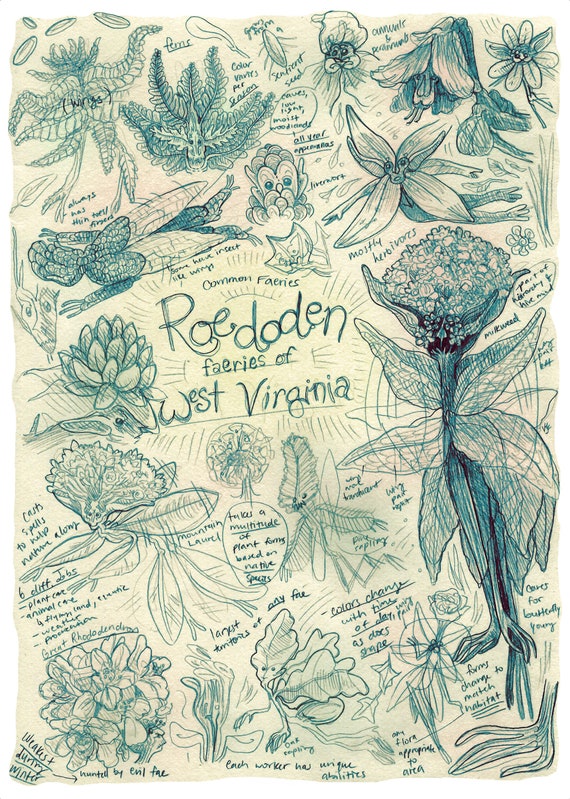 ferns
(wings)
color
varies
per
season
grows
from
a
sentient
seed
caves,
low
light,
moist
woodlands
all year
appearances
annuals
&
perennials
- always
has
thin toes/
fingers
some have insect
like wings
liverwort
mostly
herbivores
Common Faeries
Roedoden
faeries of
West Virginia
- part of
hierarchy &
hive mind
milkweed
wing
pair
left
Casts
spells
to help
nature along
mountain
Laurel
takes a
multitude
of
plant forms
based on
native
species
translucent
wing
pair
right
sapling
6 diff. jobs
- plant care
animal care
4 flying, land, aquatic
- weather
Great Rhododendron
largest
territories of any fae
colors change
with time
of day
as does
shape
cares
for
butterfly
young
forms
change to
match
habitat
oak
sapling
any
flora
appropriate
to
area
Weakest
during
winter
hunted by evil fae
each worker has unique
abilities